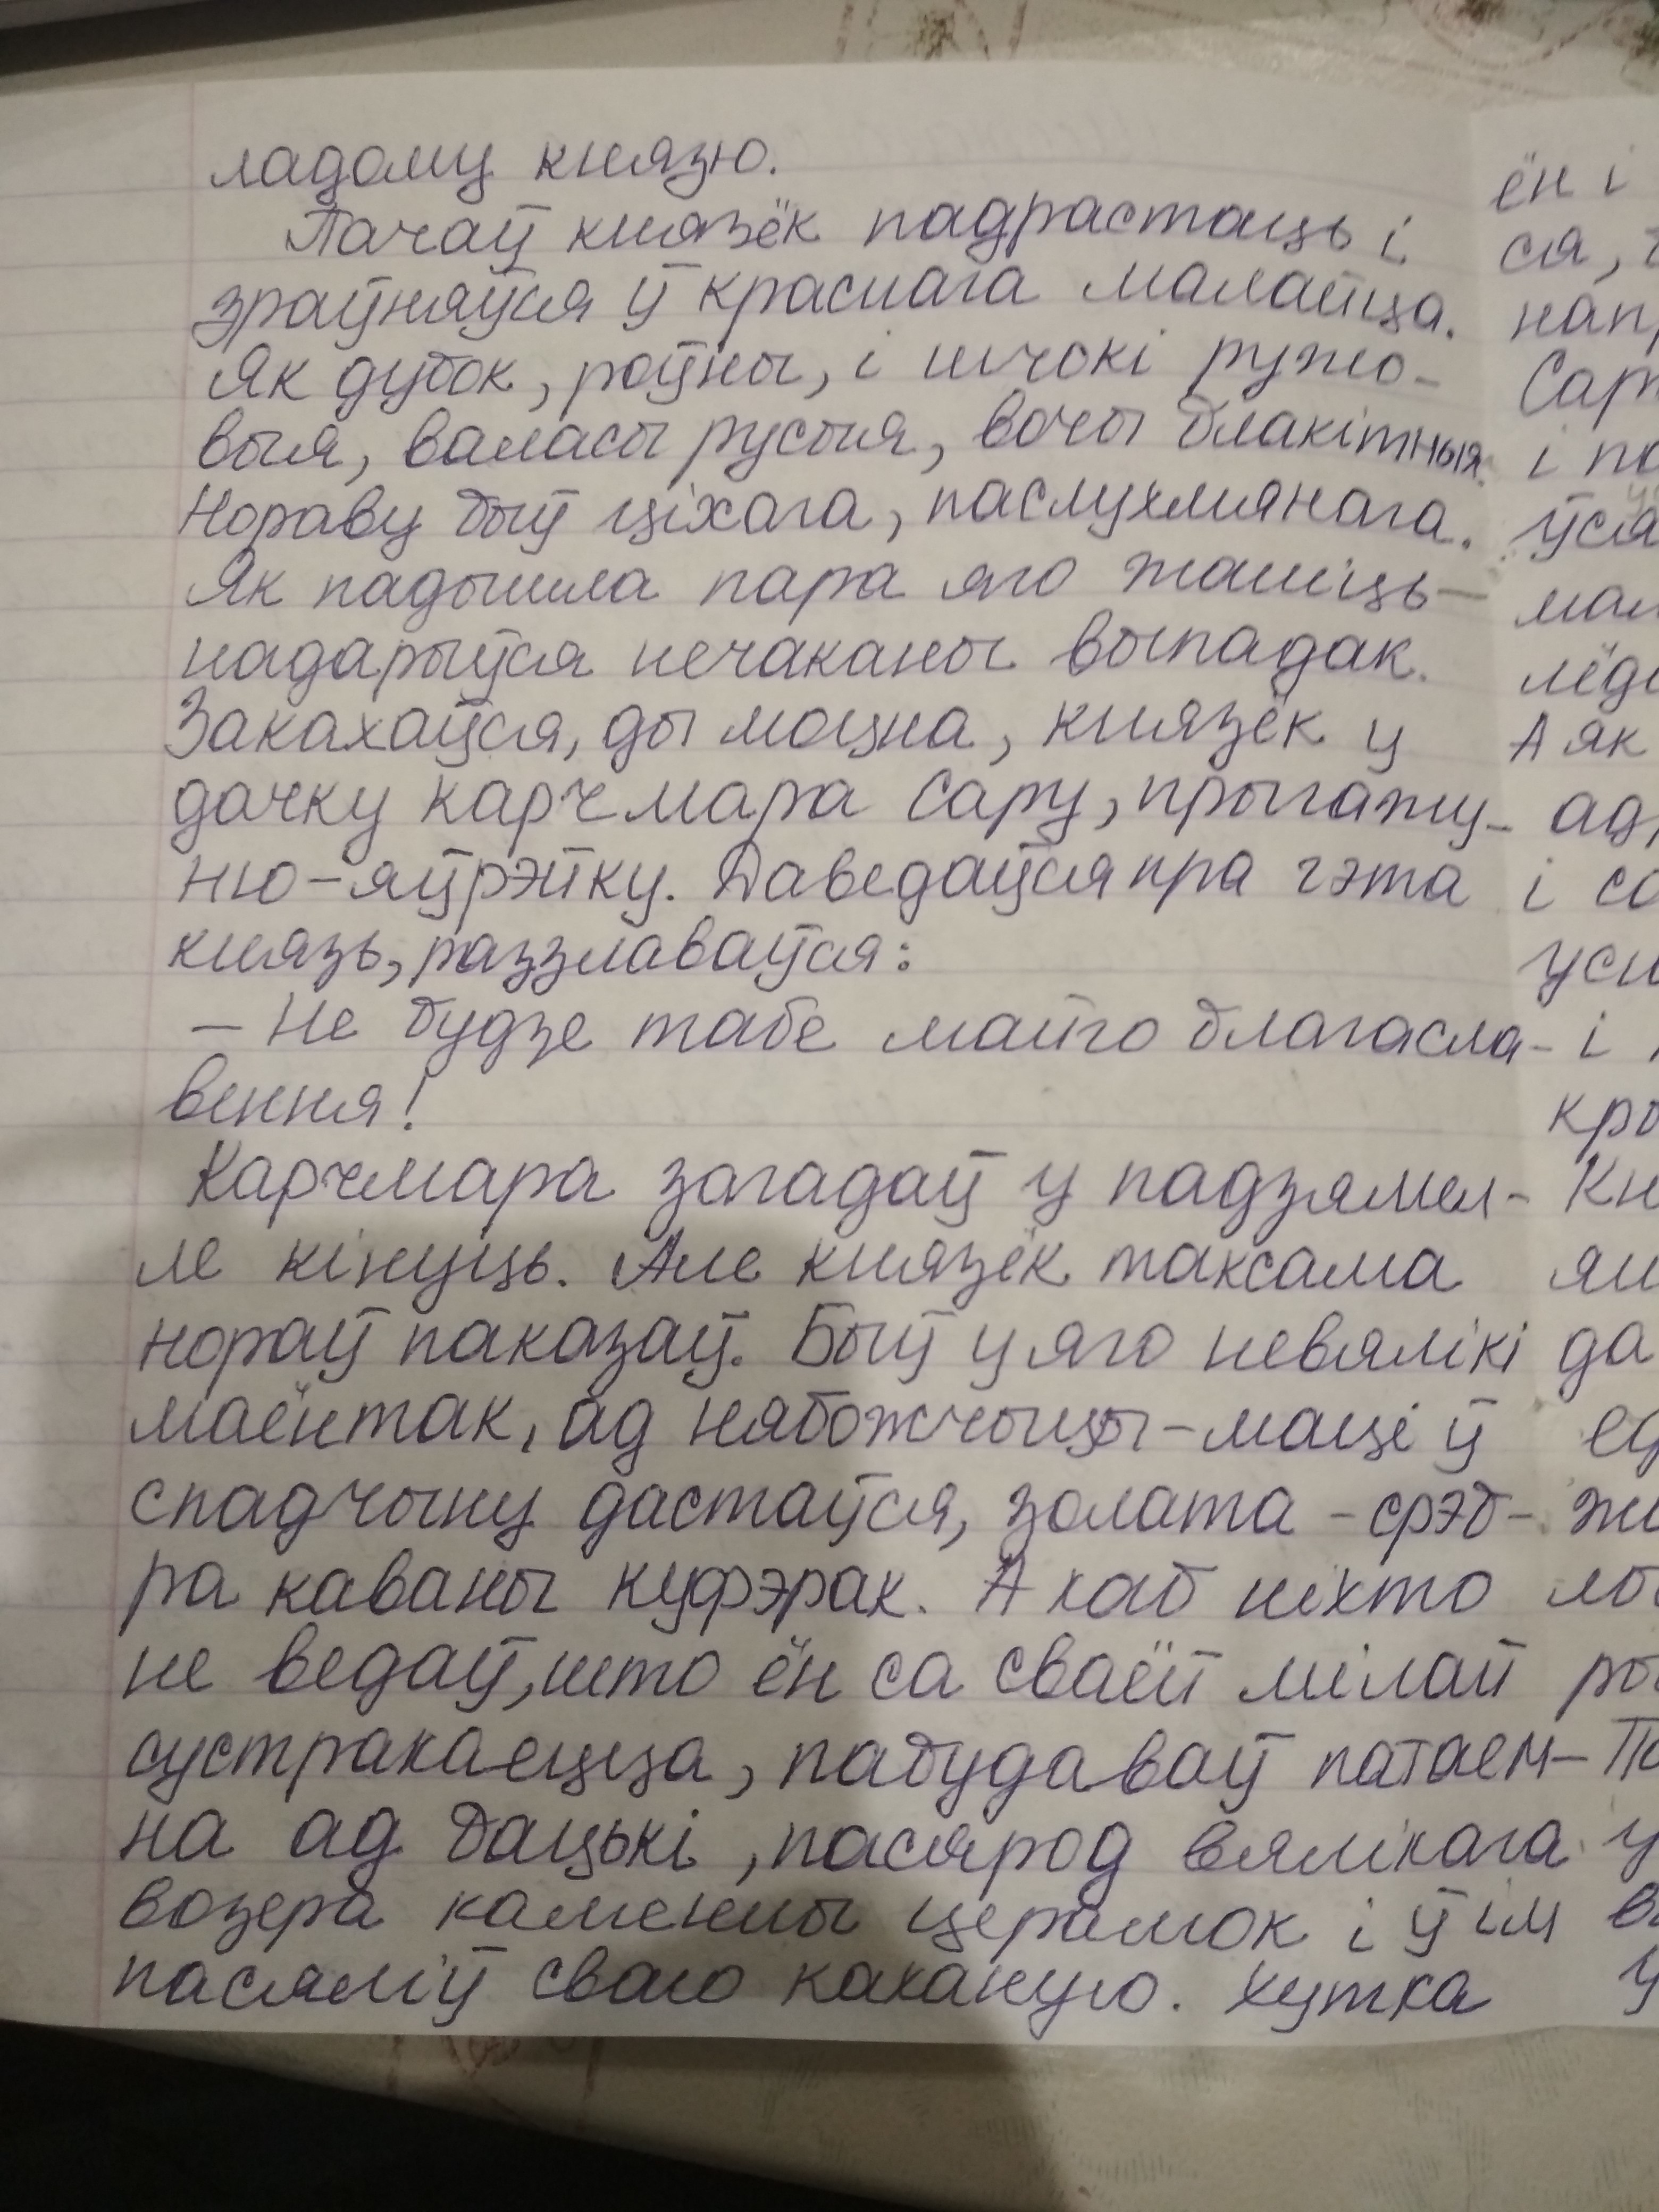 ладому князю.
Пачаў князёк падрастаць і
зраўняўся ў краснага малайца.
Як дубок, роўны, і шчокі ружо-
выя, валасы русыя, вочы блакітныя.
Нораву быў ціхага, паслухмянага.
Як падышла пара яго жаніць—
надарыўся нечаканы выпадак.
Закахаўся, ды моцна, князёк у
дачку карчмара Сару, прыгажу-
ню-яўрэйку. Даведаўся пра гэта
князь, раззлаваўся:
— Не будзе табе майго благасла-
вення!
Карчмара загадаў у падзямел-
ле кінуць. Але князёк таксама
нораў паказаў. Быў у яго невялікі
маёнтак, ад нябожчыцы-маці ў
спадчыну дастаўся, золата-срэб-
ра каваны куфэрак. А каб ніхто
не ведаў, што ён са сваёй мілай
сустракаецца, пабудаваў патаем-
на ад бацькі, пасярод вялікага
возера каменны церамок і ў ім
пасяліў сваю каханую. Хутка
ён і
ся,
нап
Сар
і па
ўся
мал
лёд
А як
ад
і со
усі
і
кры
Кн
да